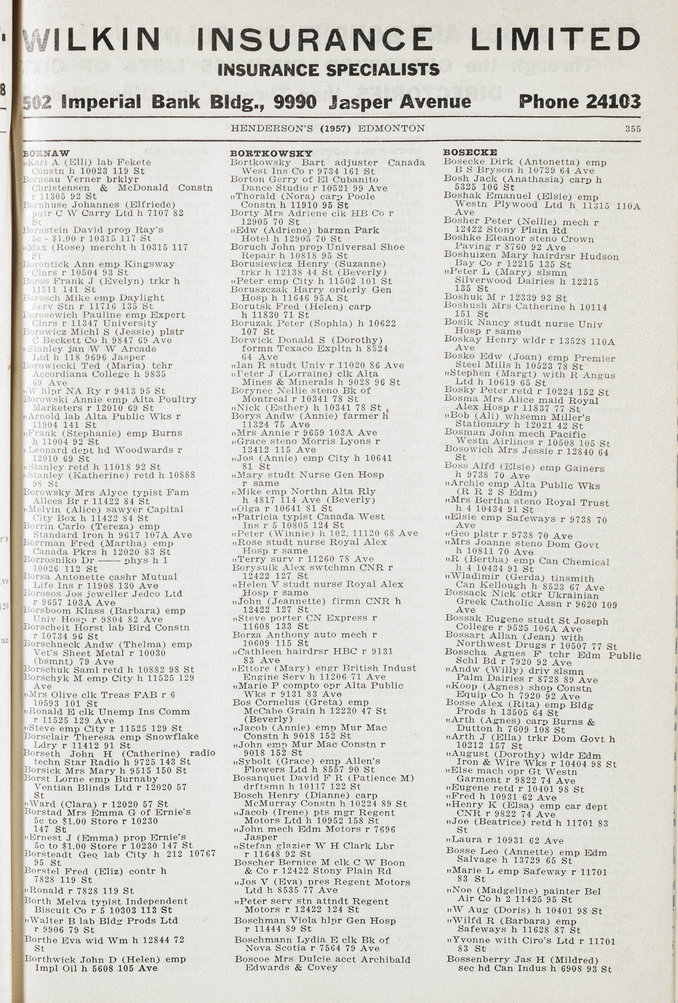 WILKIN INSURANCE LIMITED
INSURANCE SPECIALISTS
502 Imperial Bank Bldg., 9990 Jasper Avenue Phone 24103
HENDERSON'S (1957) EDMONTON 355
BORNAW
"Karl A (Elli) lab Fekete
Constn h 10023 119 St
Borneau Verner brklyr
Christensen & McDonald Constn
r 11305 92 St
Bornhuse Johannes (Elfriede)
pntr C W Carry Ltd h 7107 82
St
Bornstein David prop Ray's
5c - $1.00 r 10315 117 St
"Max (Rose) mercht h 10315 117
St
Borontick Ann emp Kingsway
Clnrs r 10504 93 St
Boros Frank J (Evelyn) trkr h
11511 141 St
Borosch Mike emp Daylight
Serv Stn r 11716 135 St
Borosewich Pauline emp Expert
Clnrs r 11347 University
Borowicz Michl S (Jessie) plstr
C Beckett Co h 9847 69 Ave
"Stanley jan W W Arcade
Ltd h 118 9696 Jasper
Borowiecki Ted (Maria) tchr
Accordiana College h 9835
69 Ave
"W hlpr NA Ry r 9413 95 St
Borowski Annie emp Alta Poultry
Marketers r 12010 69 St
"Arnold lab Alta Public Wks r
11904 141 St
"Frank (Stephanie) emp Burns
h 11004 92 St
"Leonard dept hd Woodwards r
12010 69 St
"Stanley retd h 11018 92 St
"Stanley (Katherine) retd h 10888
98 St
Borowsky Mrs Alyce typist Fam
Allces Br r 11422 84 St
"Melvin (Alice) sawyer Capital
City Box h 11422 84 St
Borrin Carlo (Tereza) emp
Standard Iron h 9617 107A Ave
Borrman Fred (Martha) emp
Canada Pkrs h 12020 83 St
Borrosniko Dr —— phys h 1
10026 112 St
Borsa Antonette cashr Mutual
Life Ins r 11908 130 Ave
Borosos Jos jeweller Jedco Ltd
r 9657 103A Ave
Borsboom Klass (Barbara) emp
Univ Hosp r 9804 82 Ave
Borscheit Horst lab Bird Constn
r 10734 96 St
Borschneck Andw (Thelma) emp
Vet's Sheet Metal r 10030
(bsmnt) 79 Ave
Borschuk Saml retd h 10882 98 St
Borschyk M emp City h 11525 129
Ave
"Mrs Olive clk Treas FAB r 6
10593 101 St
"Ronald E clk Unemp Ins Comm
r 11525 129 Ave
"Steve emp City r 11525 129 St
Borsclair Theresa emp Snowflake
Ldry r 11412 91 St
Borseth John H (Catherine) radio
techn Star Radio h 9725 143 St
Borsick Mrs Mary h 9515 150 St
Borst Lorne emp Burnaby
Ventian Blinds Ltd r 12020 57
St
"Ward (Clara) r 12020 57 St
Borstad Mrs Emma G of Ernie's
5c to $1.00 Store r 10230
147 St
"Ernest J (Emma) prop Ernie's
5c to $1.00 Store r 10230 147 St
Borsteadt Geo lab City h 212 10767
95 St
Borstel Fred (Eliz) contr h
7828 119 St
"Ronald r 7828 119 St
Borth Melva typist Independent
Biscuit Co r 5 10303 113 St
"Walter B lab Bldg Prods Ltd
r 9906 79 St
Borthe Eva wid Wm h 12844 72
St
Borthwick John D (Helen) emp
Impl Oil h 5608 105 Ave
BORTKOWSKY
Bortkowsky Bart adjuster Canada
West Ins Co r 9734 161 St
Borton Gerry of El Cubanito
Dance Studio r 10521 99 Ave
"Thorald (Nora) carp Poole
Constn h 11910 95 St
Borty Mrs Adriene clk HB Co r
12905 70 St
"Edw (Adriene) barmn Park
Hotel h 12905 70 St
Boruch John prop Universal Shoe
Repair h 10818 95 St
Borusiewicz Henry (Suzanne)
trkr h 12138 44 St (Beverly)
"Peter emp City h 11502 101 St
Boruszczak Harry orderly Gen
Hosp h 11646 95A St
Borutsk Fred (Helen) carp
h 11830 71 St
Boruzak Peter (Sophia) h 10622
107 St
Borwick Donald S (Dorothy)
formn Texaco Expltn h 8524
64 Ave
"Ian R studt Univ r 11020 86 Ave
"Peter J (Lorraine) clk Alta
Mines & Minerals h 9028 96 St
Borynec Nellie steno Bk of
Montreal r 10341 78 St
"Nick (Esther) h 10341 78 St
Borys Andw (Annie) farmer h
11324 75 Ave
"Mrs Annie r 9659 103A Ave
"Grace steno Morris Lyons r
13412 115 Ave
"Jos (Annie) emp City h 10641
81 St
"Mary studt Nurse Gen Hosp
r same
"Mike emp North Alta Rly
h 4817 114 Ave (Beverly)
"Olga r 10641 81 St
"Patricia typist Canada West
Ins r 5 10805 124 St
"Peter (Winnie) h 102, 11120 68 Ave
"Rose studt nurse Royal Alex
Hosp r same
"Terry surv r 11260 78 Ave
Borysuik Alex swtchmn CNR r
12422 127 St
"Helen V studt nurse Royal Alex
Hosp r same
"John (Jeannette) firmn CNR h
12422 127 St
"Steve porter CN Express r
11608 133 St
Borza Anthony auto mech r
10609 115 St
"Cathleen hairdrsr HBC r 9131
83 Ave
"Ettore (Mary) engr British Indust
Engine Serv h 11206 71 Ave
"Marie P compto opr Alta Public
Wks r 9131 83 Ave
Bos Cornelus (Greta) emp
McCabe Grain h 12230 47 St
(Beverly)
"Jacob (Annie) emp Mur Mac
Constn h 9018 152 St
"John emp Mur Mac Constn r
9018 152 St
"Sybolt (Grace) emp Allen's
Flowers Ltd h 8557 90 St
Bosanquet David F R (Patience M)
drftsmn h 10117 122 St
Bosch Henry (Dianne) carp
McMurray Constn h 10224 89 St
"Jacob (Irene) pts mgr Regent
Motors Ltd h 10952 158 St
"John mech Edm Motors r 7696
Jasper
"Stefan glazier W H Clark Lbr
r 11648 92 St
Boscher Bernice M clk C W Boon
& Co r 12422 Stony Plain Rd
"Jos V (Eva) pres Regent Motors
Ltd h 8535 77 Ave
"Peter serv stn attndt Regent
Motors r 12422 124 St
Boschman Viola hlpr Gen Hosp
r 11444 89 St
Boschmann Lydia E clk Bk of
Nova Scotia r 7564 79 Ave
Boscoe Mrs Dulcie acct Archibald
Edwards & Covey
BOSECKE
Bosecke Dirk (Antonetta) emp
B S Bryson h 10729 64 Ave
Bosh Jack (Anathasia) carp h
5325 106 St
Boshak Emanuel (Elsie) emp
Westn Plywood Ltd h 11315 110A
Ave
Bosher Peter (Nellie) mech r
12422 Stony Plain Rd
Boshko Eleanor steno Crown
Paving r 8760 92 Ave
Boshuizen Mary hairdrsr Hudson
Bay Co r 12215 135 St
"Peter L (Mary) slsmn
Silverwood Dairies h 12215
135 St
Boshuk M r 12339 93 St
Boshush Mrs Catherine h 10114
151 St
Bosik Nancy studt nurse Univ
Hosp r same
Boskay Henry wldr r 13528 110A
Ave
Bosko Edw (Joan) emp Premier
Steel Mills h 10523 78 St
"Stephen (Margt) with R Angus
Ltd h 10619 65 St
Bosky Peter retd r 10224 152 St
Bosma Mrs Alice maid Royal
Alex Hosp r 11837 77 St
"Bob (Ali) whsemn Miller's
Stationary h 12021 42 St
Bosman John mech Pacific
Westn Airlines r 10508 105 St
Bosowich Mrs Jessie r 12840 64
St
Boss Alfd (Elsie) emp Gainers
h 9738 70 Ave
"Archie emp Alta Public Wks
(R R 2 S Edm)
"Mrs Bertha steno Royal Trust
h 4 10434 91 St
"Elsie emp Safeways r 9738 70
Ave
"Geo plstr r 9738 70 Ave
"Mrs Joanne steno Dom Govt
h 10811 70 Ave
"R (Bertha) emp Can Chemical
h 4 10434 91 St
"Wladimir (Gerda) tinsmith
Can Kellough h 8523 67 Ave
Bossack Nick ctkr Ukrainian
Greek Catholic Assn r 9620 109
Ave
Bossak Eugene studt St Joseph
College r 9525 106A Ave
Bossart Allan (Jean) with
Northwest Drugs r 10507 77 St
Bosscha Agnes F tchr Edm Public
Schl Bd r 7920 92 Ave
"Andw (Willy) driv slsmn
Palm Dairies r 8728 89 Ave
"Koop (Agnes) shop Constn
Equip Co h 7920 92 Ave
Bosse Alex (Rita) emp Bldg
Prods h 13505 64 St
"Arth (Agnes) carp Burns &
Dutton h 7609 108 St
"Arth J (Ella) trkr Dom Govt h
10212 157 St
"August (Dorothy) wldr Edm
Iron & Wire Wks r 10404 98 St
"Else mach opr Gt Westn
Garment r 9822 74 Ave
"Eugene retd r 10401 98 St
"Fred h 10931 62 Ave
"Henry K (Elsa) emp car dept
CNR r 9822 74 Ave
"Joe (Beatrice) retd h 11701 83
St
"Laura r 10931 62 Ave
Bosse Leo (Annette) emp Edm
Salvage h 13729 65 St
"Marie L emp Safeway r 11701
83 St
"Noe (Madgeline) painter Bel
Air Co h 2 11425 95 St
"W Aug (Doris) h 10401 98 St
"Wilfd R (Barbara) emp
Safeways h 11628 87 St
"Yvonne with Ciro's Ltd r 11701
83 St
Bossenberry Jas H (Mildred)
sec hd Can Indus h 6908 93 St